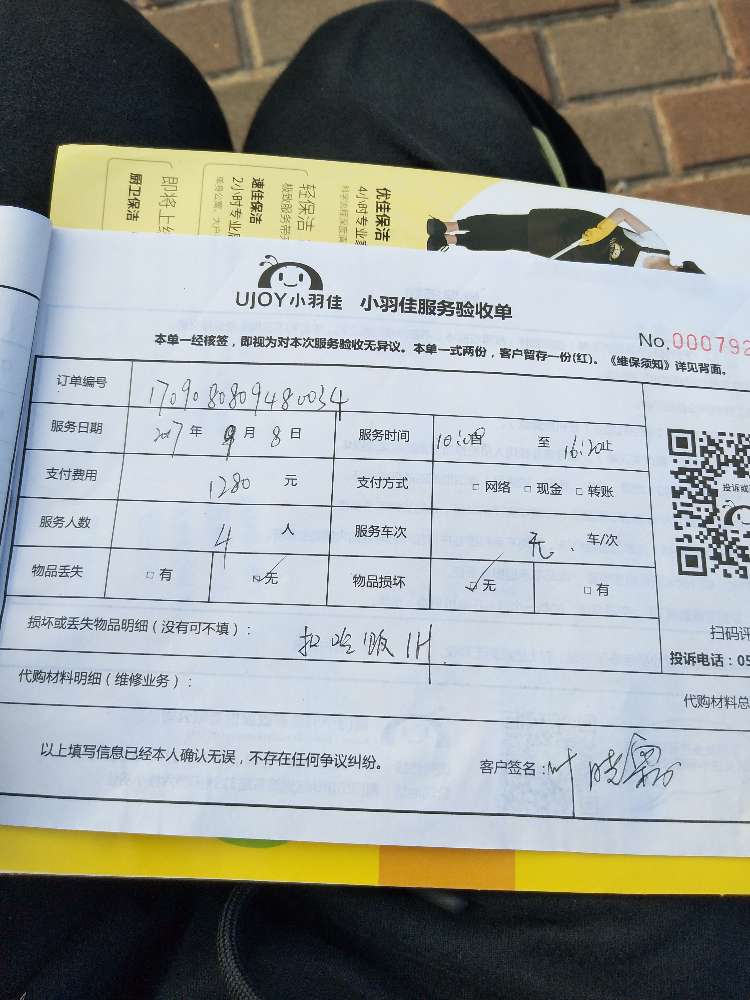 优佳保洁
4小时专业
速佳保洁
2小时专业
单身公寓、大户
轻保洁
极致服务带
即将上线
厨卫保洁
UJOY小羽佳 小羽佳服务验收单
No.000792
本单一经核签，即视为对本次服务验收无异议。本单一式两份，客户留存一份(红)。《维保须知》详见背面。
订单编号 1709080809480034
服务日期 2017年 9月 8日 服务时间 10:00自 至 16:20止
支付费用 1280 元 支付方式 □ 网络 □ 现金 □ 转账
投诉或
服务人数 4 人 服务车次 无 车/次
物品丢失 □ 有 ☑无 物品损坏 ☑无 □ 有
损坏或丢失物品明细（没有可不填）： 扣吃饭1H
扫码评
投诉电话：05
代购材料明细（维修业务）：
代购材料总
以上填写信息已经本人确认无误，不存在任何争议纠纷。 客户签名：叶晓露